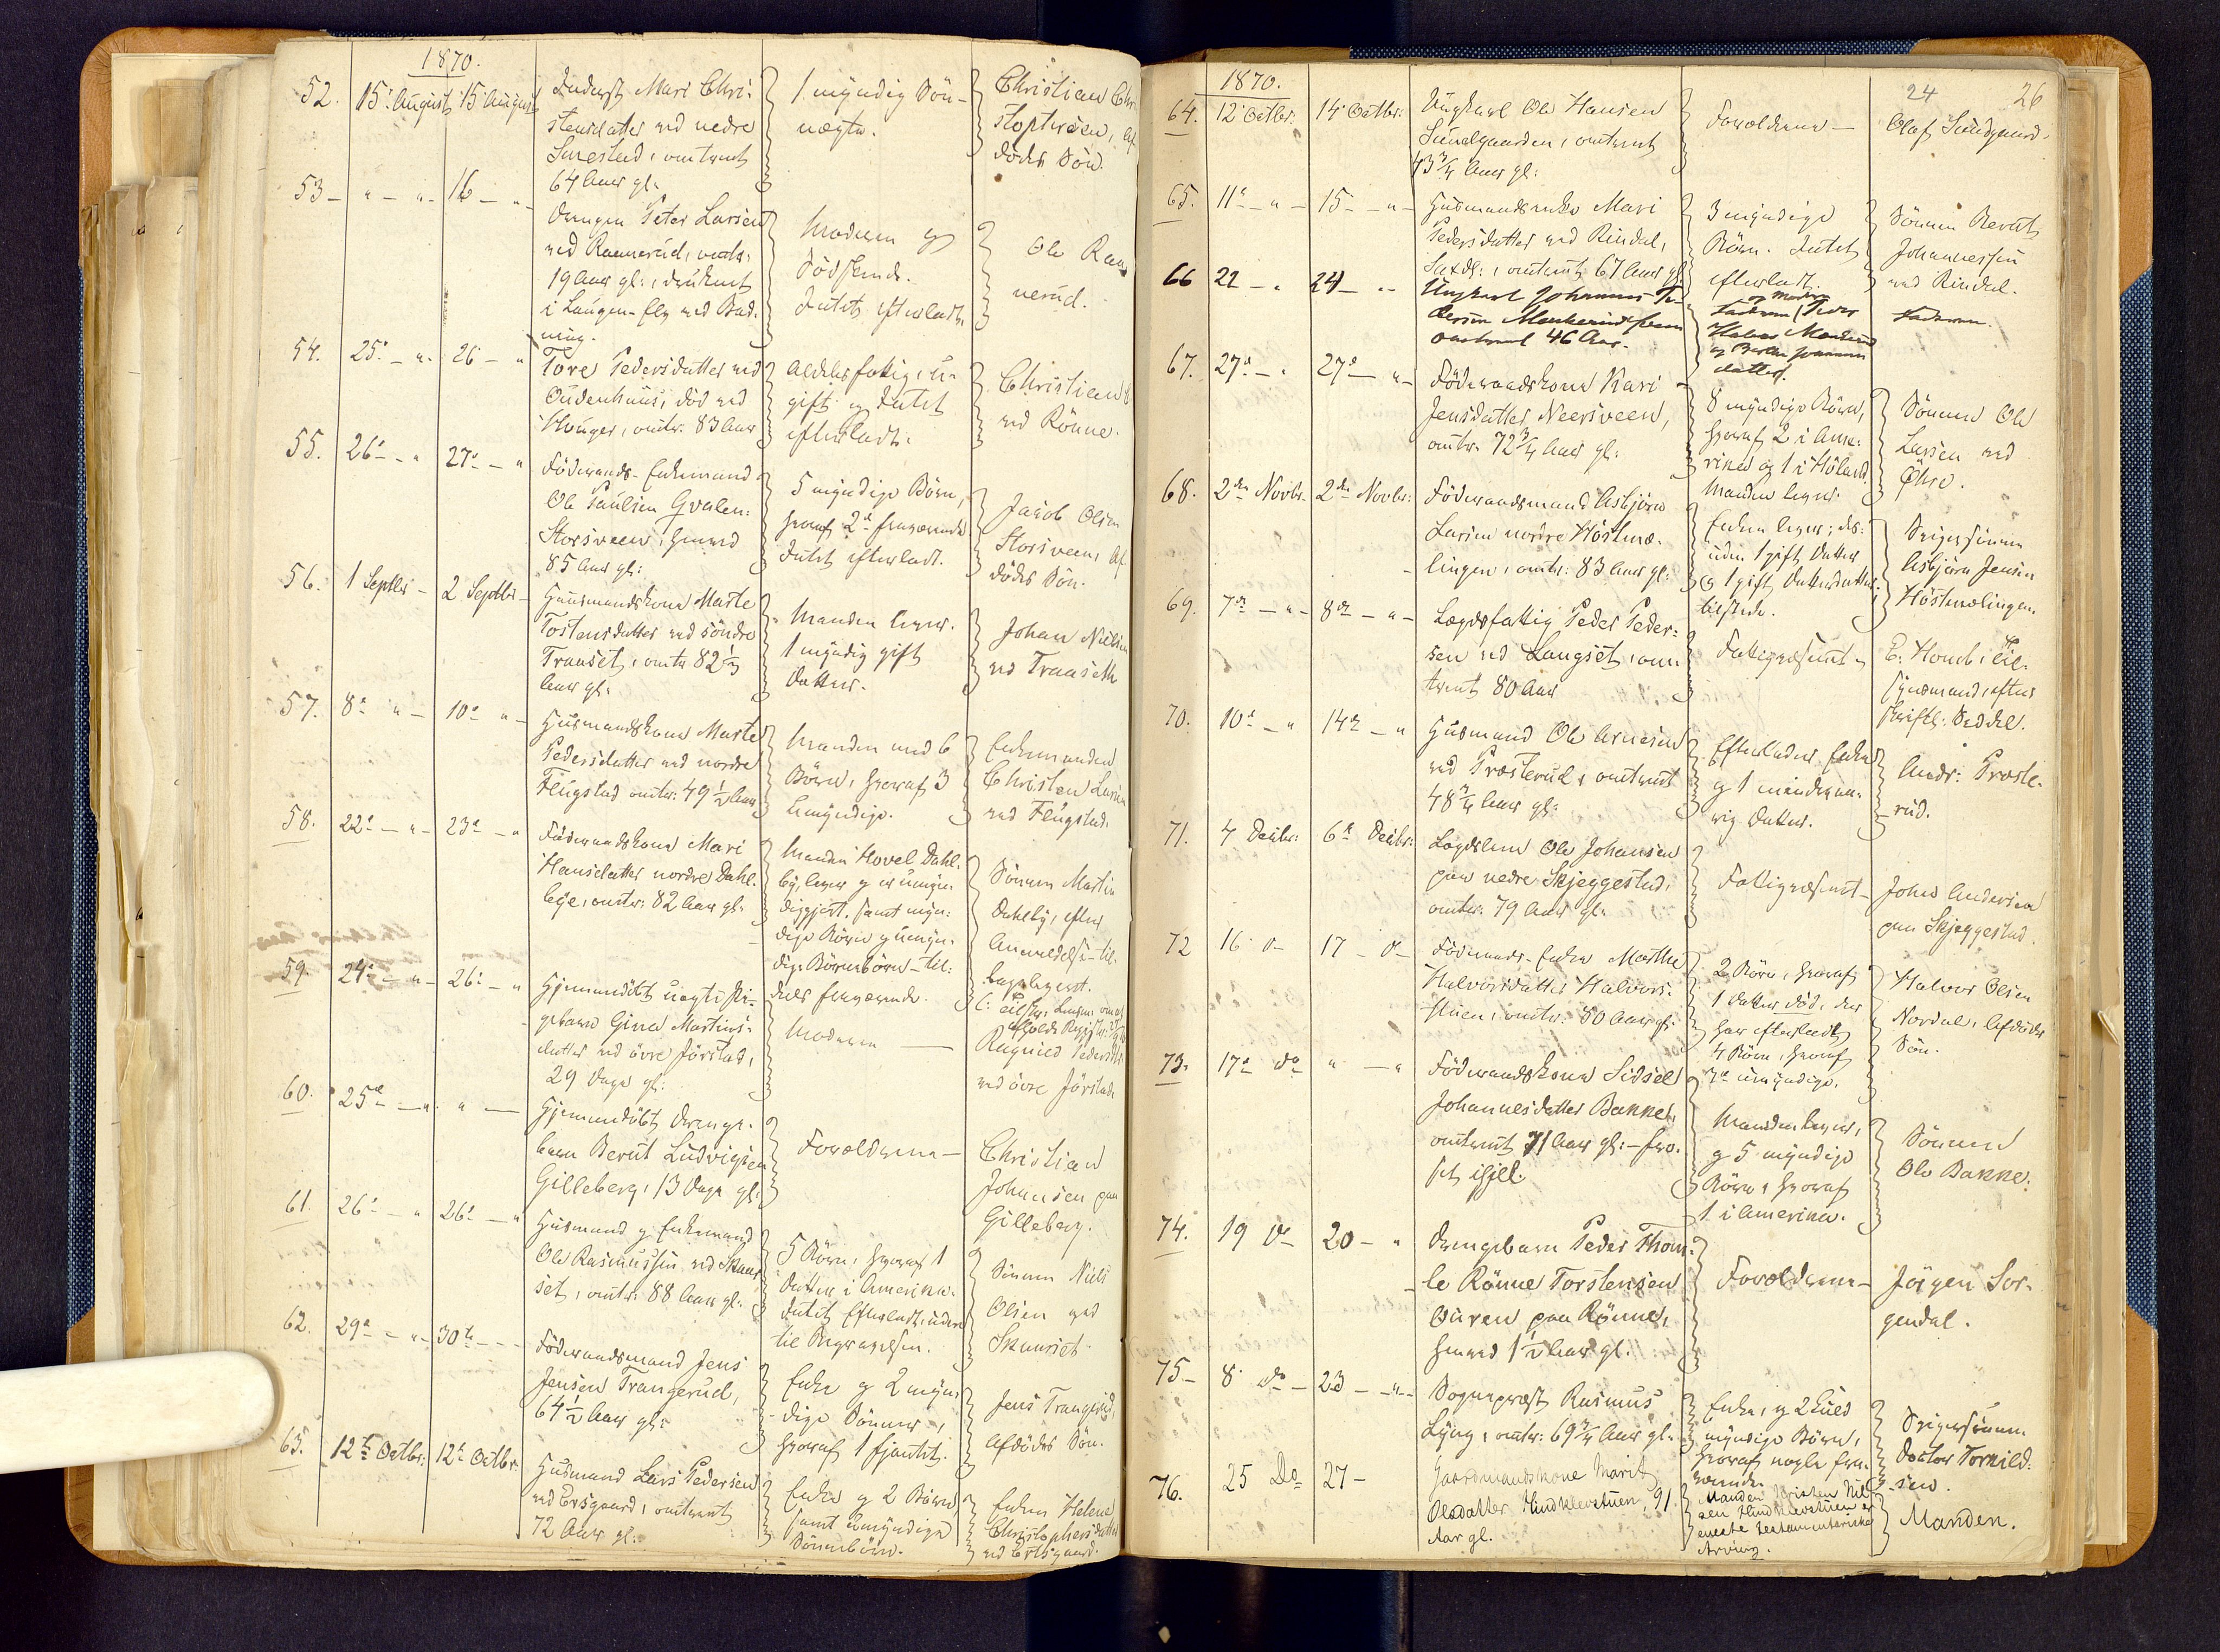 1870.
52. 15. August 15 August Inderst Mari Chri-
stensdatter ved nedre
Smestad, omtrent
64 Aar gl.
1 myndig Søn-
nægte.
Christian Chri
stophersen, Af-
dødes Søn.
53 - " - " - 16 - " -
Drengen Peter Larsen
ved Rannerud, omtr.
19 Aar gl., druknet
i Laugen-Elv ved Bad-
ning.
Moderen og
Sødskende.
Intet efterladt.
Ole Ran
nerud.
54. 25. - " - 26 - "
Tore Pedersdatter ved
Oudenhuus, død ved
Houger, omtr. 83 Aar
Lægdsfattig, u-
gift og Intet
efterladt.
Christian
ved Rønne.
55. 26 - " 27 - "
Føderaads-Enkemand
Ole Paulsen Qvalen-
Storsveen, henved
85 Aar gl:
5 myndige Børn,
hvoraf 2 fraværende
Intet efterladt.
Jacob Olsen
Storsveen, Af-
dødes Søn.
56. 1 Septbr - 2 Septbr -
Huusmandskone Marte
Tostensdatter ved søndre
Traaset, omtr 82 1/2
Aar gl.
Manden lever.
1 myndig gift
Datter.
Johan Nielsen
ved Traaseth
57. 8 " - 10 " -
Husmandskone Marte
Pedersdatter ved nordre
Flugstad omtr: 49 1/2 Aar
Manden med 6
Børn, hvoraf 3
Umyndige.
Enkemanden
Christen Larsen
ved Flugstad.
58. 22 - " - 23 - "
Føderaadskone Mari
Hansdatter nordre Dahl-
bye, omtr: 82 Aar gl.
Manden Hovel Dahl-
by, lever og er umyn-
diggjort, samt myn-
dige Børn og umyn-
dige Børnebørn - til-
dels fraværende.
Sønnen Martin
Dahlby, efter
Anmeldelse til-
bagelagt.
59. 24 - " - 26 - "
Hjemmedøbt uægte Pi-
gebarn Gina Martins-
datter ved øvre Jørstad,
29 Dage gl:
Moderen
Ragnild Pedersdtr
ved øvre Jørstad
60. 25 - " - " -
Hjemmedøbt Drenge-
barn Bernt Ludvigsen
Gilleberg, 13 Dage gl.
Forældrene -
Christian
Johansen paa
Gilleberg.
61. 26 - " 26 - "
Husmand og Enkemand
Ole Rasmussen ved Skaar
set, omtr: 88 Aar gl.
5 Børn, hvoraf 1
Datter i Amerika.
Intet Efterladt, uden
til Begravelsen.
Sønnen Niels
Olsen ved
Skaarset.
62. 29 - " - 30te - -
Føderaadsmand Jens
Jensen Trangerud,
64 1/2 Aar gl.
Enke og 2 myn-
dige Sønner,
hvoraf 1 fjantet.
Jens Trangerud,
Afdødes Søn.
63. 12te Octbr. 12te Octbr.
Husmand Lars Pedersen
ved Ersgaard, omtrent
72 Aar gl.
Enke og 2 Børn,
samt Umyndige
Sønnebørn.
Enken Helene
Christophersdatter
ved Ersgaard.
1870.
24 26
64. 12 Octbr. 14 Octbr:
Ungkarl Ole Hansen
Sundgaarden, omtrent
43 3/4 Aar gl:
Forældrene -
Olaf Sundgaard.
65. 11 - " - 15 - " -
Husmandsenke Mari
Pedersdatter ved Rindal,
67 Aar gl
3 myndige
Børn. Intet
efterladt.
Sønnen Bernt
Johannessen
ved Rindal.
66 22 - " 24 - "
Ungkarl Johannes Pe-
dersen
omtrent 46 Aar.
og Moder
Faderen Peder
datter.
Faderen.
67. 27 - " 27 - " -
Føderaadskone Kari
Jensdatter Neersveen,
omtr. 72 3/4 Aar gl:
8 myndige Børn,
hvoraf 2 i Ame-
rika og 1 i Høland.
Manden lever.
Sønnen Ole
Larsen ved
Øhre.
68. 2den Novbr. 2den Novbr:
Føderaadsmand Asbjørn
Larsen nordre Høstmæ-
lingen, omtr: 83 Aar gl:
Enken lever; des-
uden 1 gift Datter
og 1 gift Datterdatter
tilstede.
Svigersønnen
Asbjørn Jensen
Høstmælingen
69. 7de - " - 8de - " -
Lægdsfattig Peder Peder-
sen ved Langset, om-
trent 80 Aar
Fattigvæsenet -
E. Homb, Til-
synsmand, efter
skriftl. Seddel.
70. 10 - " 14 - "
Husmand Ole Arnesen
ved Prosterud, omtrent
48 3/4 Aar gl:
Efterlader Enke
og 1 mindreaa-
rig Datter.
Andr: Proste-
rud.
71. 4 Decbr: 6te Decbr:
Lægdslem Ole Johansen
paa nedre Skjeggestad,
omtr: 79 Aar gl.
Fattigvæsenet -
Johs Andersen
paa Skjeggestad.
72 16 D- 17 - D-
Føderaads-Enke Marthe
Halvorsdatter Halvors-
stuen, omtr: 80 Aar gl.
2 Børn, hvoraf
1 Datter død, der
har efterladt
4 Børn, hvoraf
umyndige.
Halvor Olsen
Nordal, Afdødes
Søn.
73. 17 do " - "
Føderaadskone Sidsel
Johannesdatter Bakken,
omtrent 71 Aar gl: - fro-
set ihjel.
Manden lever,
og 5 myndige
Børn, hvoraf
1 i Amerika.
Sønnen
Ole Bakke.
74. 19 D- 20 - "
Drengebarn Peder Thom-
le Rønne Torstensen
Ouren paa Rønne,
henved 1 1/2 Aar gl.
Forældrene -
Jørgen Sor-
gendal.
75 - 8 do - 23 - " -
Sogneprest Rasmus
Lyng, omtr: 69 3/4 Aar gl.
Enke, og 2 Kuld
myndige Børn,
hvoraf nogle fra-
værende.
Svigersønnen
Doctor Tornild-
sen.
76. 25 Do 27 -
Gaardmandskone Marit
Olesdatter Hindklevstuen, 91
Aar gl.
Manden Kristen Nil-
sen Hindklevstuen er
eneste testamentariske
Arving.
Manden.